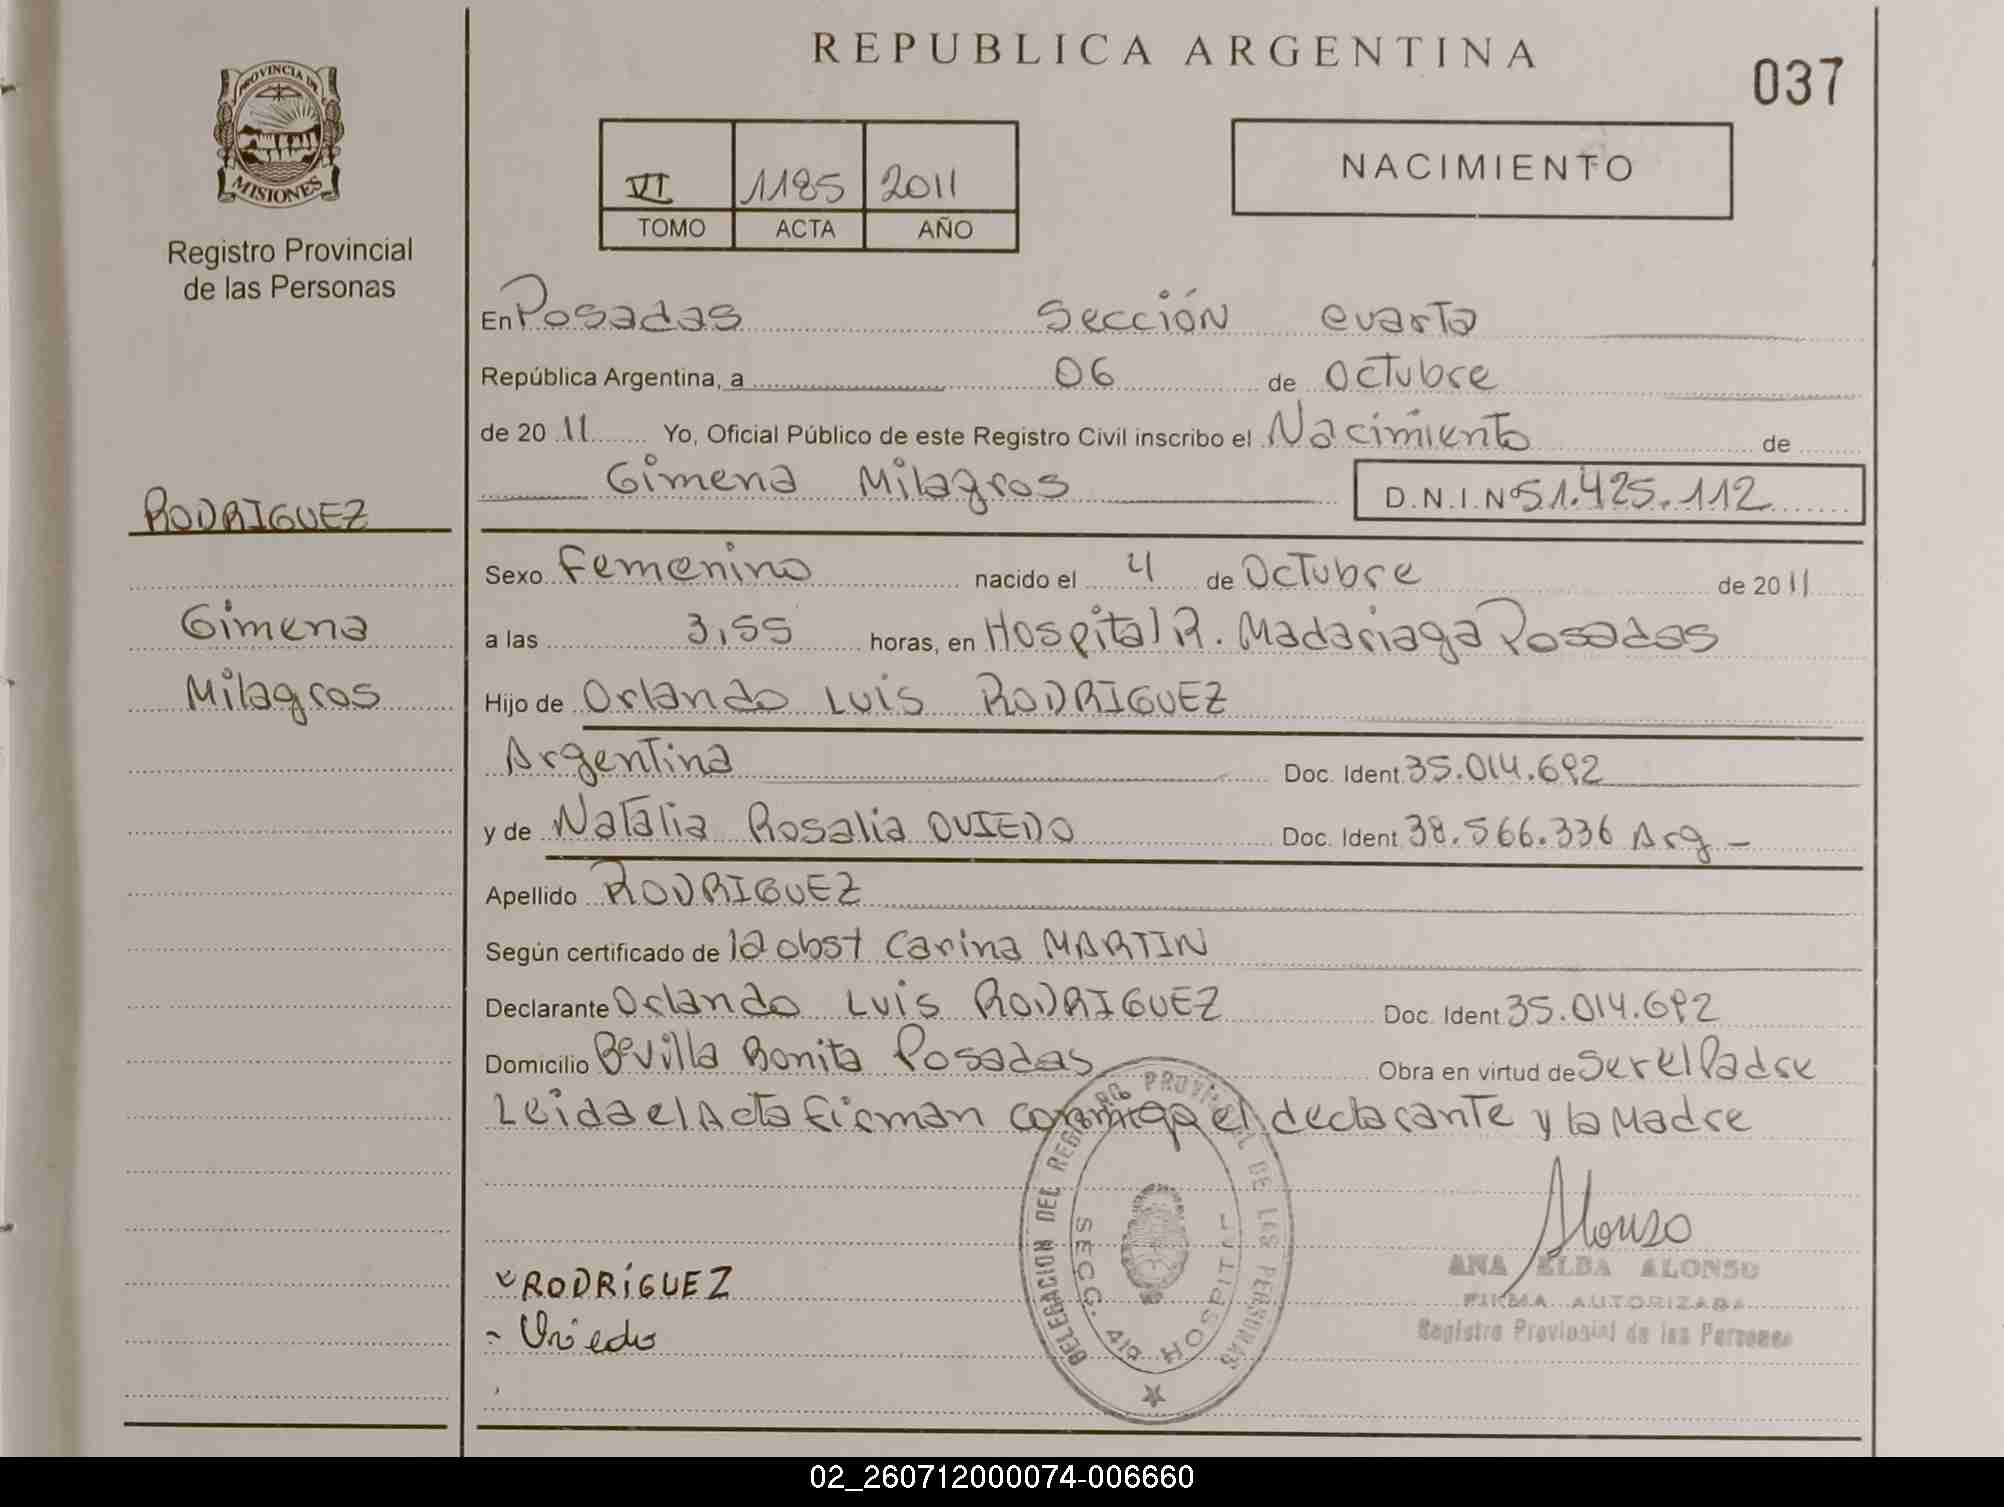 REPUBLICA ARGENTINA
037
PROVINCIA DE
MISIONES
Registro Provincial
de las Personas
VI 1185 2011
TOMO ACTA AÑO
NACIMIENTO
En Posadas Sección cuarta
República Argentina, a 06 de Octubre
de 20 11 Yo, Oficial Público de este Registro Civil inscribo el Nacimiento de
Gimena Milagros D.N.I.Nº 51.425.112
RODRIGUEZ
Gimena
Milagros
Sexo Femenino nacido el 4 de Octubre de 20 11
a las 3,55 horas, en Hospital R. Madariaga Posadas
Hijo de Orlando Luis RODRIGUEZ
Argentina Doc. Ident. 35.014.692
y de Natalia Rosalia OVIEDO Doc. Ident. 38.566.336 Arg -
Apellido RODRIGUEZ
Según certificado de la obst Carina MARTIN
Declarante Orlando Luis RODRIGUEZ Doc. Ident. 35.014.692
Domicilio Bº Villa Bonita Posadas Obra en virtud de ser el Padre
Leida el Acta firman conmigo el declarante y la Madre
DELEGACION DEL REGISTRO PROVINCIAL DE LAS PERSONAS
SECC. 4ta HOSPITAL
Alonso
ANA ELBA ALONSO
FIRMA AUTORIZADA
Registro Provincial de las Personas
RODRíGUEZ
- Oviedo
02_260712000074-006660